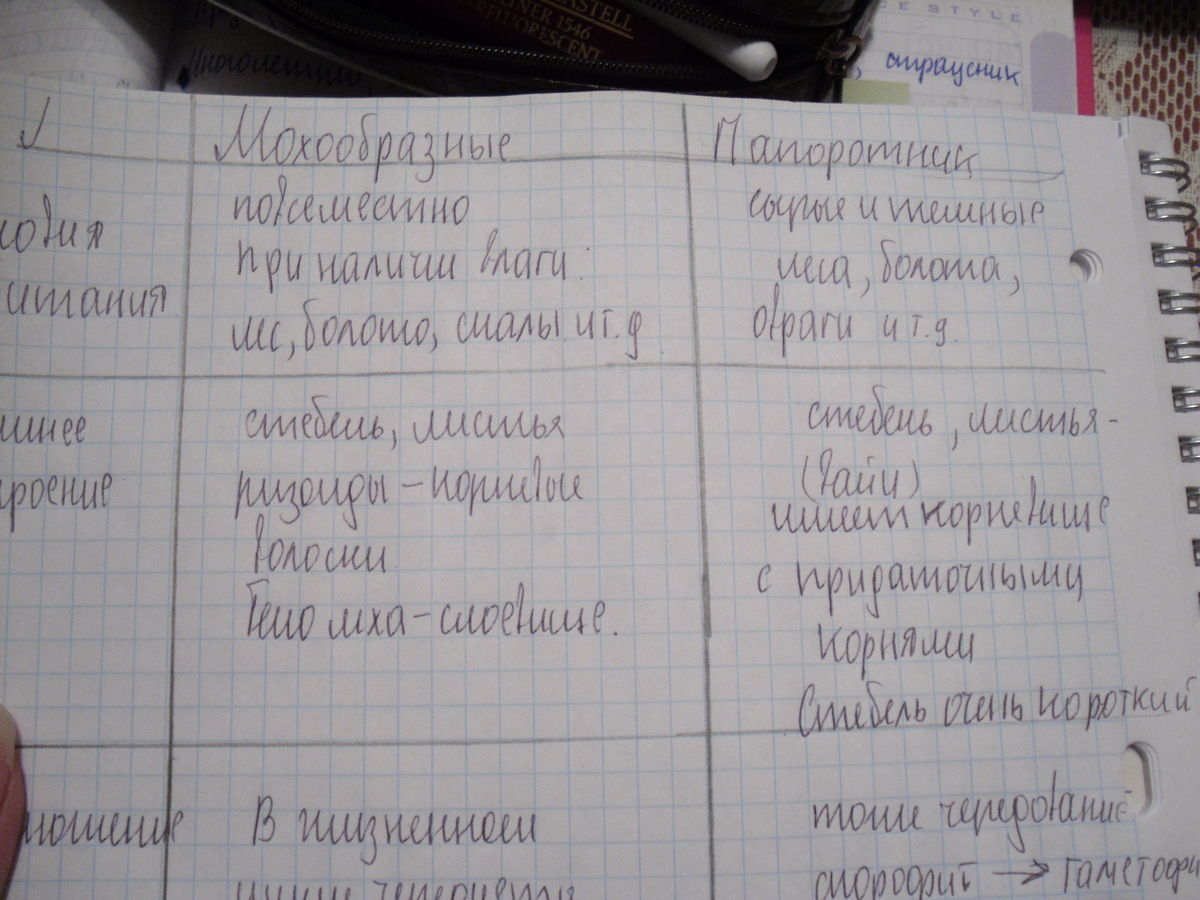 CE STYLE
STELL
LINER 1546
FLUORESCENT
Многолетн
, страусник
Мохообразные
Папоротник
повсеместно
при наличии влаги:
лес, болото, скалы и т.д
сырые и темные
леса, болота,
овраги и т.д.
овия
итания
шнее
роение
стебель, листья
ризоиды – корневые
волоски
Тело мха – слоевище.
стебель, листья -
(вайи)
имеет корневище
с придаточными
корнями
Стебель очень короткий
ношение
В жизненном
цикле чередуется
тоже чередование
спорофит → гаметофи